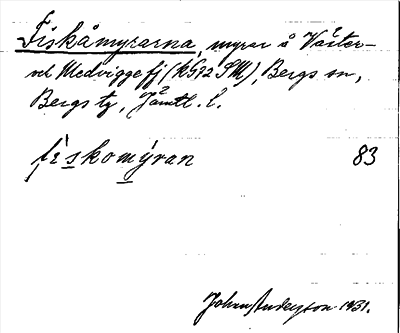 Fiskåmyrarna, myrar å Väster-
och Medviggefj (kG92 SM), Bergs sn,
Bergs tg, Jämtl. l.
fiskomýran 83
Johan Anderson 1931.